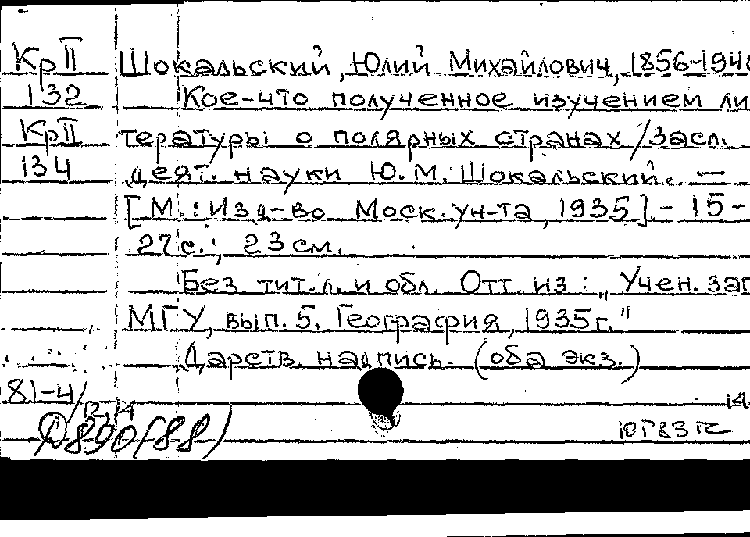 Кр II Шокальский, Юлий Михайлович, 1856-194
132 Кое-что полученное изучением ли
Кр II тературы о полярных странах / Засл.
134 деят. науки Ю. М. Шокальский. —
[М.: Изд-во Моск. ун-та, 1935]. - 15-
27 с.; 23 см.
Без тит. л. и обл. Отт. из: „Учен. зап
МГУ, вып. 5. География, 1935 г."
Дарств. надпись. (оба экз.)
81-4/
12,14
Д890(88)